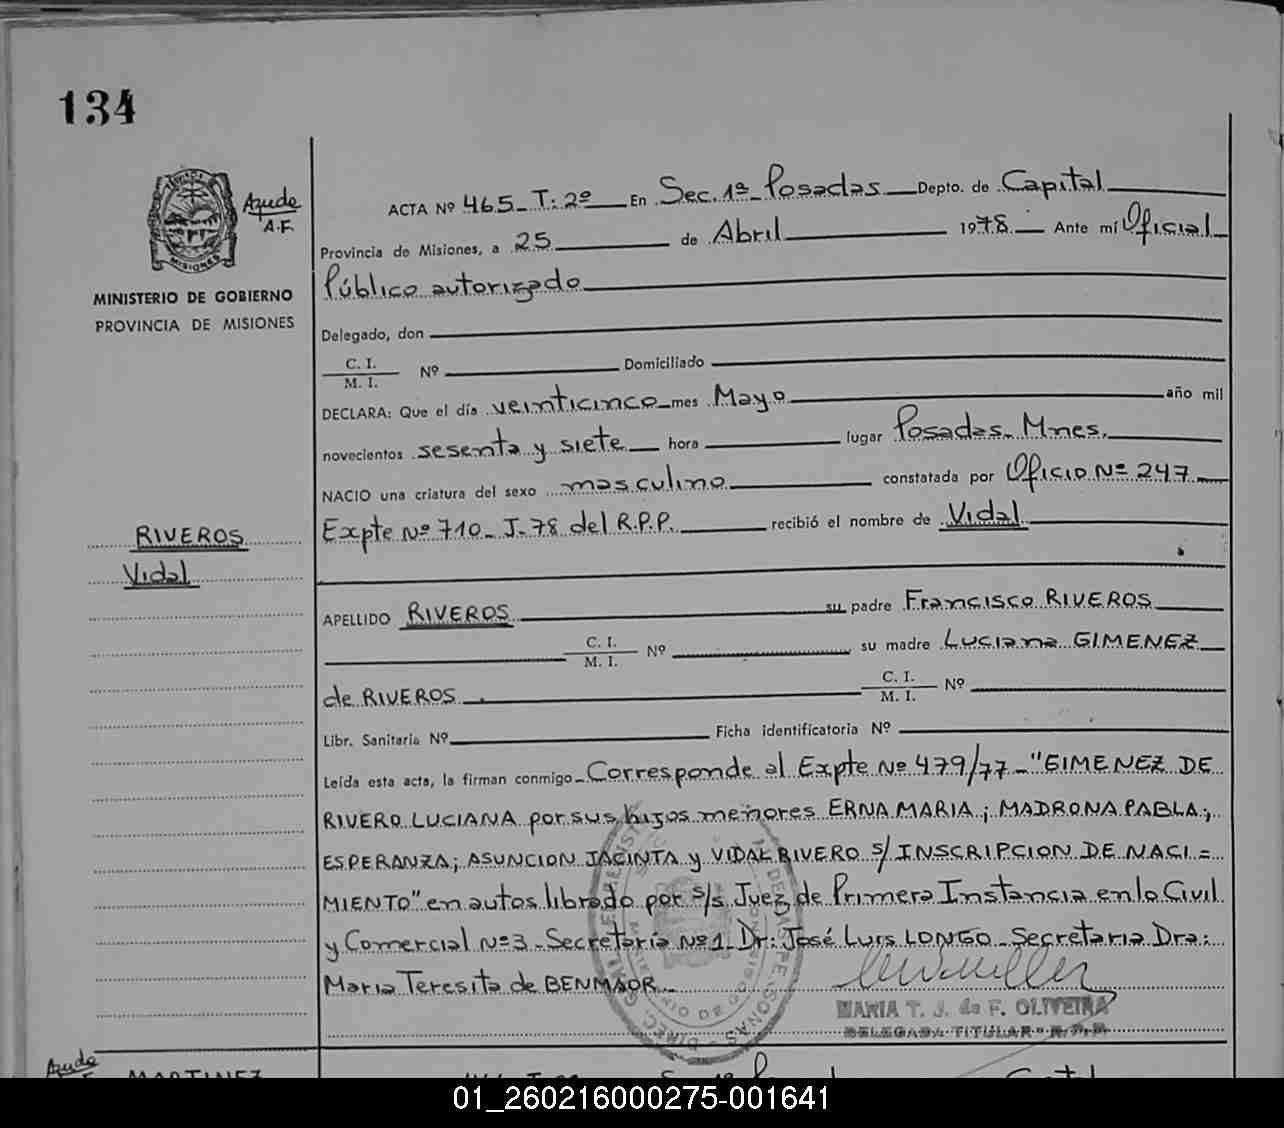 134
Ayude
A.F.
MISIONES
MINISTERIO DE GOBIERNO
PROVINCIA DE MISIONES
RIVEROS
Vidal
ACTA Nº 465_ T: 2º En Sec. 1ª Posadas Depto. de Capital
Provincia de Misiones, a 25 de Abril 1978. Ante mí Oficial
Público autorizado
Delegado, don
C. I.
M. I. Nº Domiciliado
DECLARA: Que el día veinticinco mes Mayo año mil
novecientos sesenta y siete hora lugar Posadas_ Mnes.
NACIO una criatura del sexo masculino constatada por Oficio Nº 247
Expte Nº 710_ J_78 del R.P.P. recibió el nombre de Vidal
APELLIDO RIVEROS su padre Francisco RIVEROS
C. I.
M. I. Nº su madre Luciana GIMENEZ
de RIVEROS C. I.
M. I. Nº
Libr. Sanitaria Nº Ficha identificatoria Nº
Leída esta acta, la firman conmigo_ Corresponde al Expte Nº 479/77_ "GIMENEZ DE
RIVERO LUCIANA por sus hijos menores ERNA MARIA; MADRONA PABLA;
ESPERANZA; ASUNCION JACINTA y VIDAL RIVERO s/ INSCRIPCION DE NACI=
MIENTO" en autos librado por s/s Juez de Primera Instancia en lo Civil
y Comercial Nº 3_ Secretaría Nº 1_ Dr: José Luis LONGO_ Secretaria Dra:
Maria Teresita de BENMAOR_
MARIA T. J. de F. OLIVEIRA
DELEGADA TITULAR - R.P.P.
Ayude
MARTINEZ
01_260216000275-001641